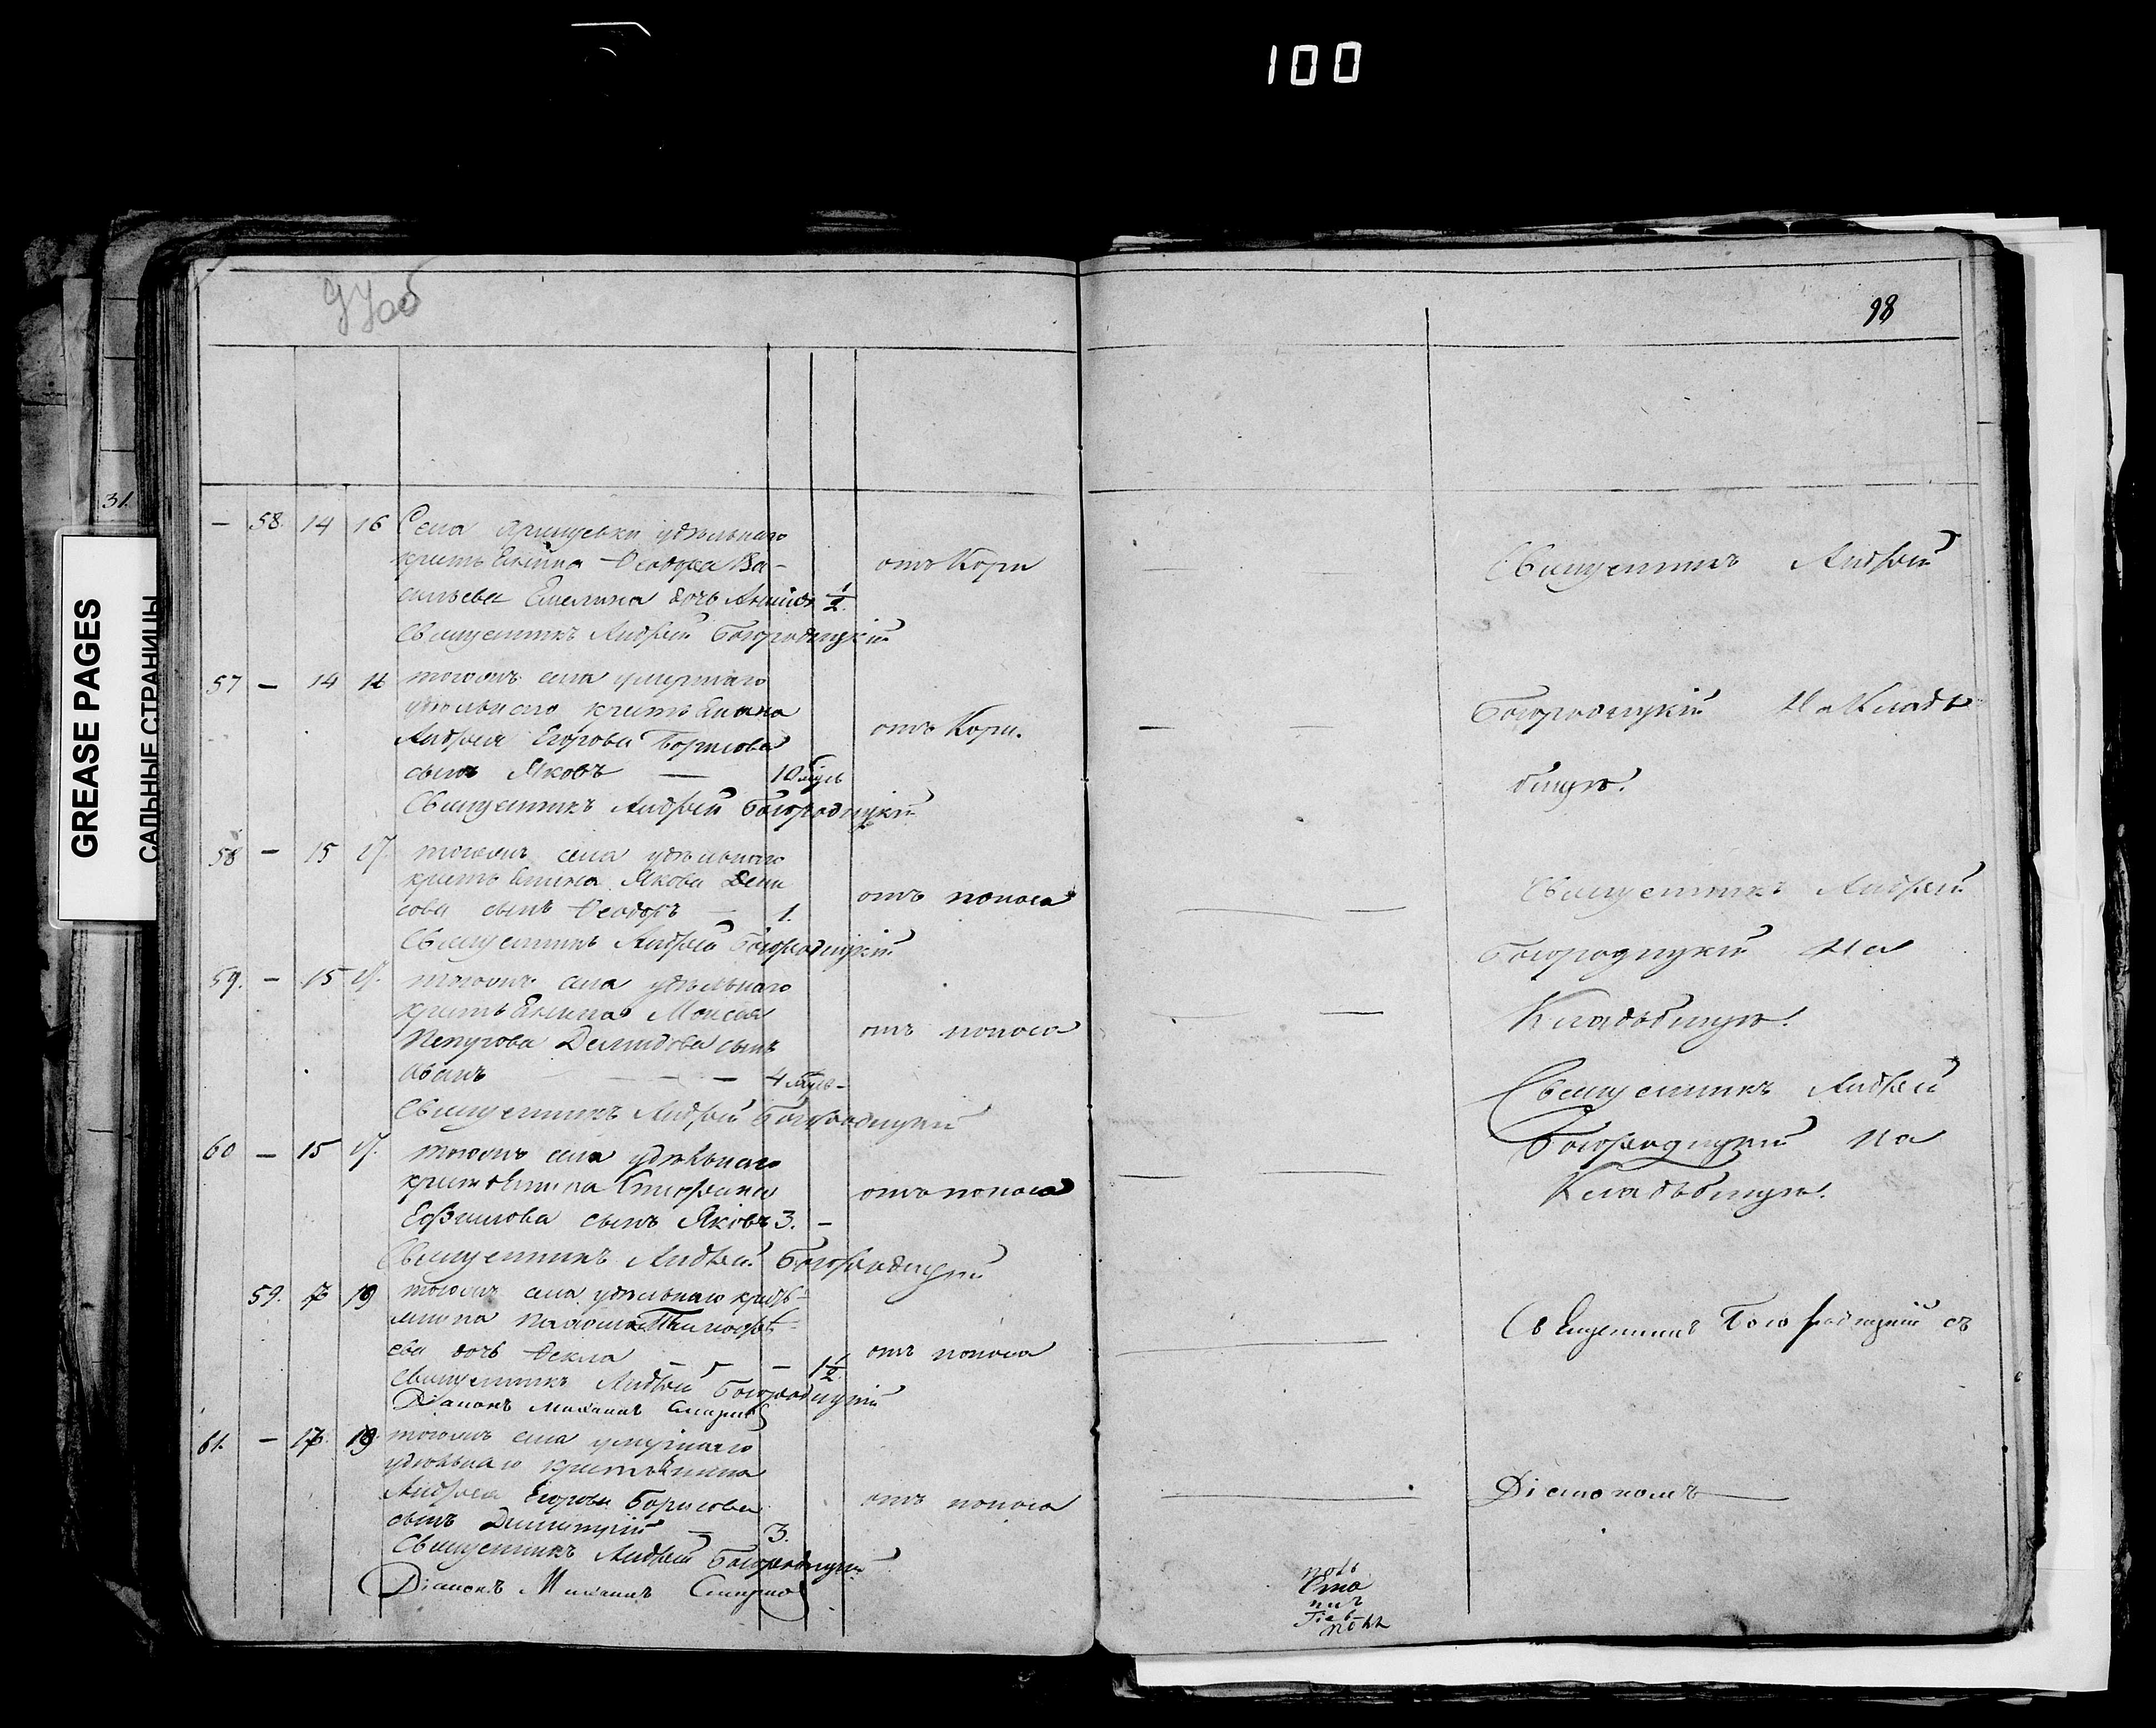 100
97об
98
31.
GREASE PAGES
САЛЬНЫЕ СТРАНИЦЫ
— 58. 14 16 Села удѣльнаго
крестьянина Ѳеодора Ва-
сильева Емелина дочь 1/2.
отъ Кори
Священникъ Андрей Богородицкій
57 — 14 16 тогожъ села умершаго
удѣльнаго крестьянина
Андрея Егорова Борисова
отъ Кори.
сынъ Яковъ — 10
Священникъ Андрей Богородицкій
58 — 15 17. тогожъ села удѣльнаго
крестьянина Якова Дени
сова сынъ Ѳеодоръ — 1.
отъ поноса
Священникъ Андрей Богородицкій
59. — 15 17. тогожъ села удѣльнаго
крестьянина Моисея
Петрова Демидова сынъ
отъ поноса
— — — 4
Священникъ Андрей Богородицкій
60 — 15 17. тогожъ села удѣльнаго
крестьянина
Ефимова сынъ Яковъ 3. —
отъ поноса
Священникъ Андрей Богородицкій
59. 17 19 тогожъ села удѣльнаго кресть-
янина Тимофѣ-
ева дочь Ѳекла — — 1 1/2
отъ поноса
Священникъ Андрей Богородицкій
Діаконъ Михаилъ Смирновъ
61. — 17. 19 тогожъ села умершаго
удѣльнаго крестьянина
Андрея Егорова Борисова
отъ поноса
сынъ Димитрій — 3.
Священникъ Андрей Богородицкій
Діаконъ Михаилъ Смирновъ
Священникъ Андрей
Богородицкій На Кладъ
бищѣ.
Священникъ Андрей
Богородицкій На
Кладъбищѣ.
Священникъ Андрей
Богородицкій На
Кладъбищѣ.
Священникъ Богородицкій съ
Діакономъ